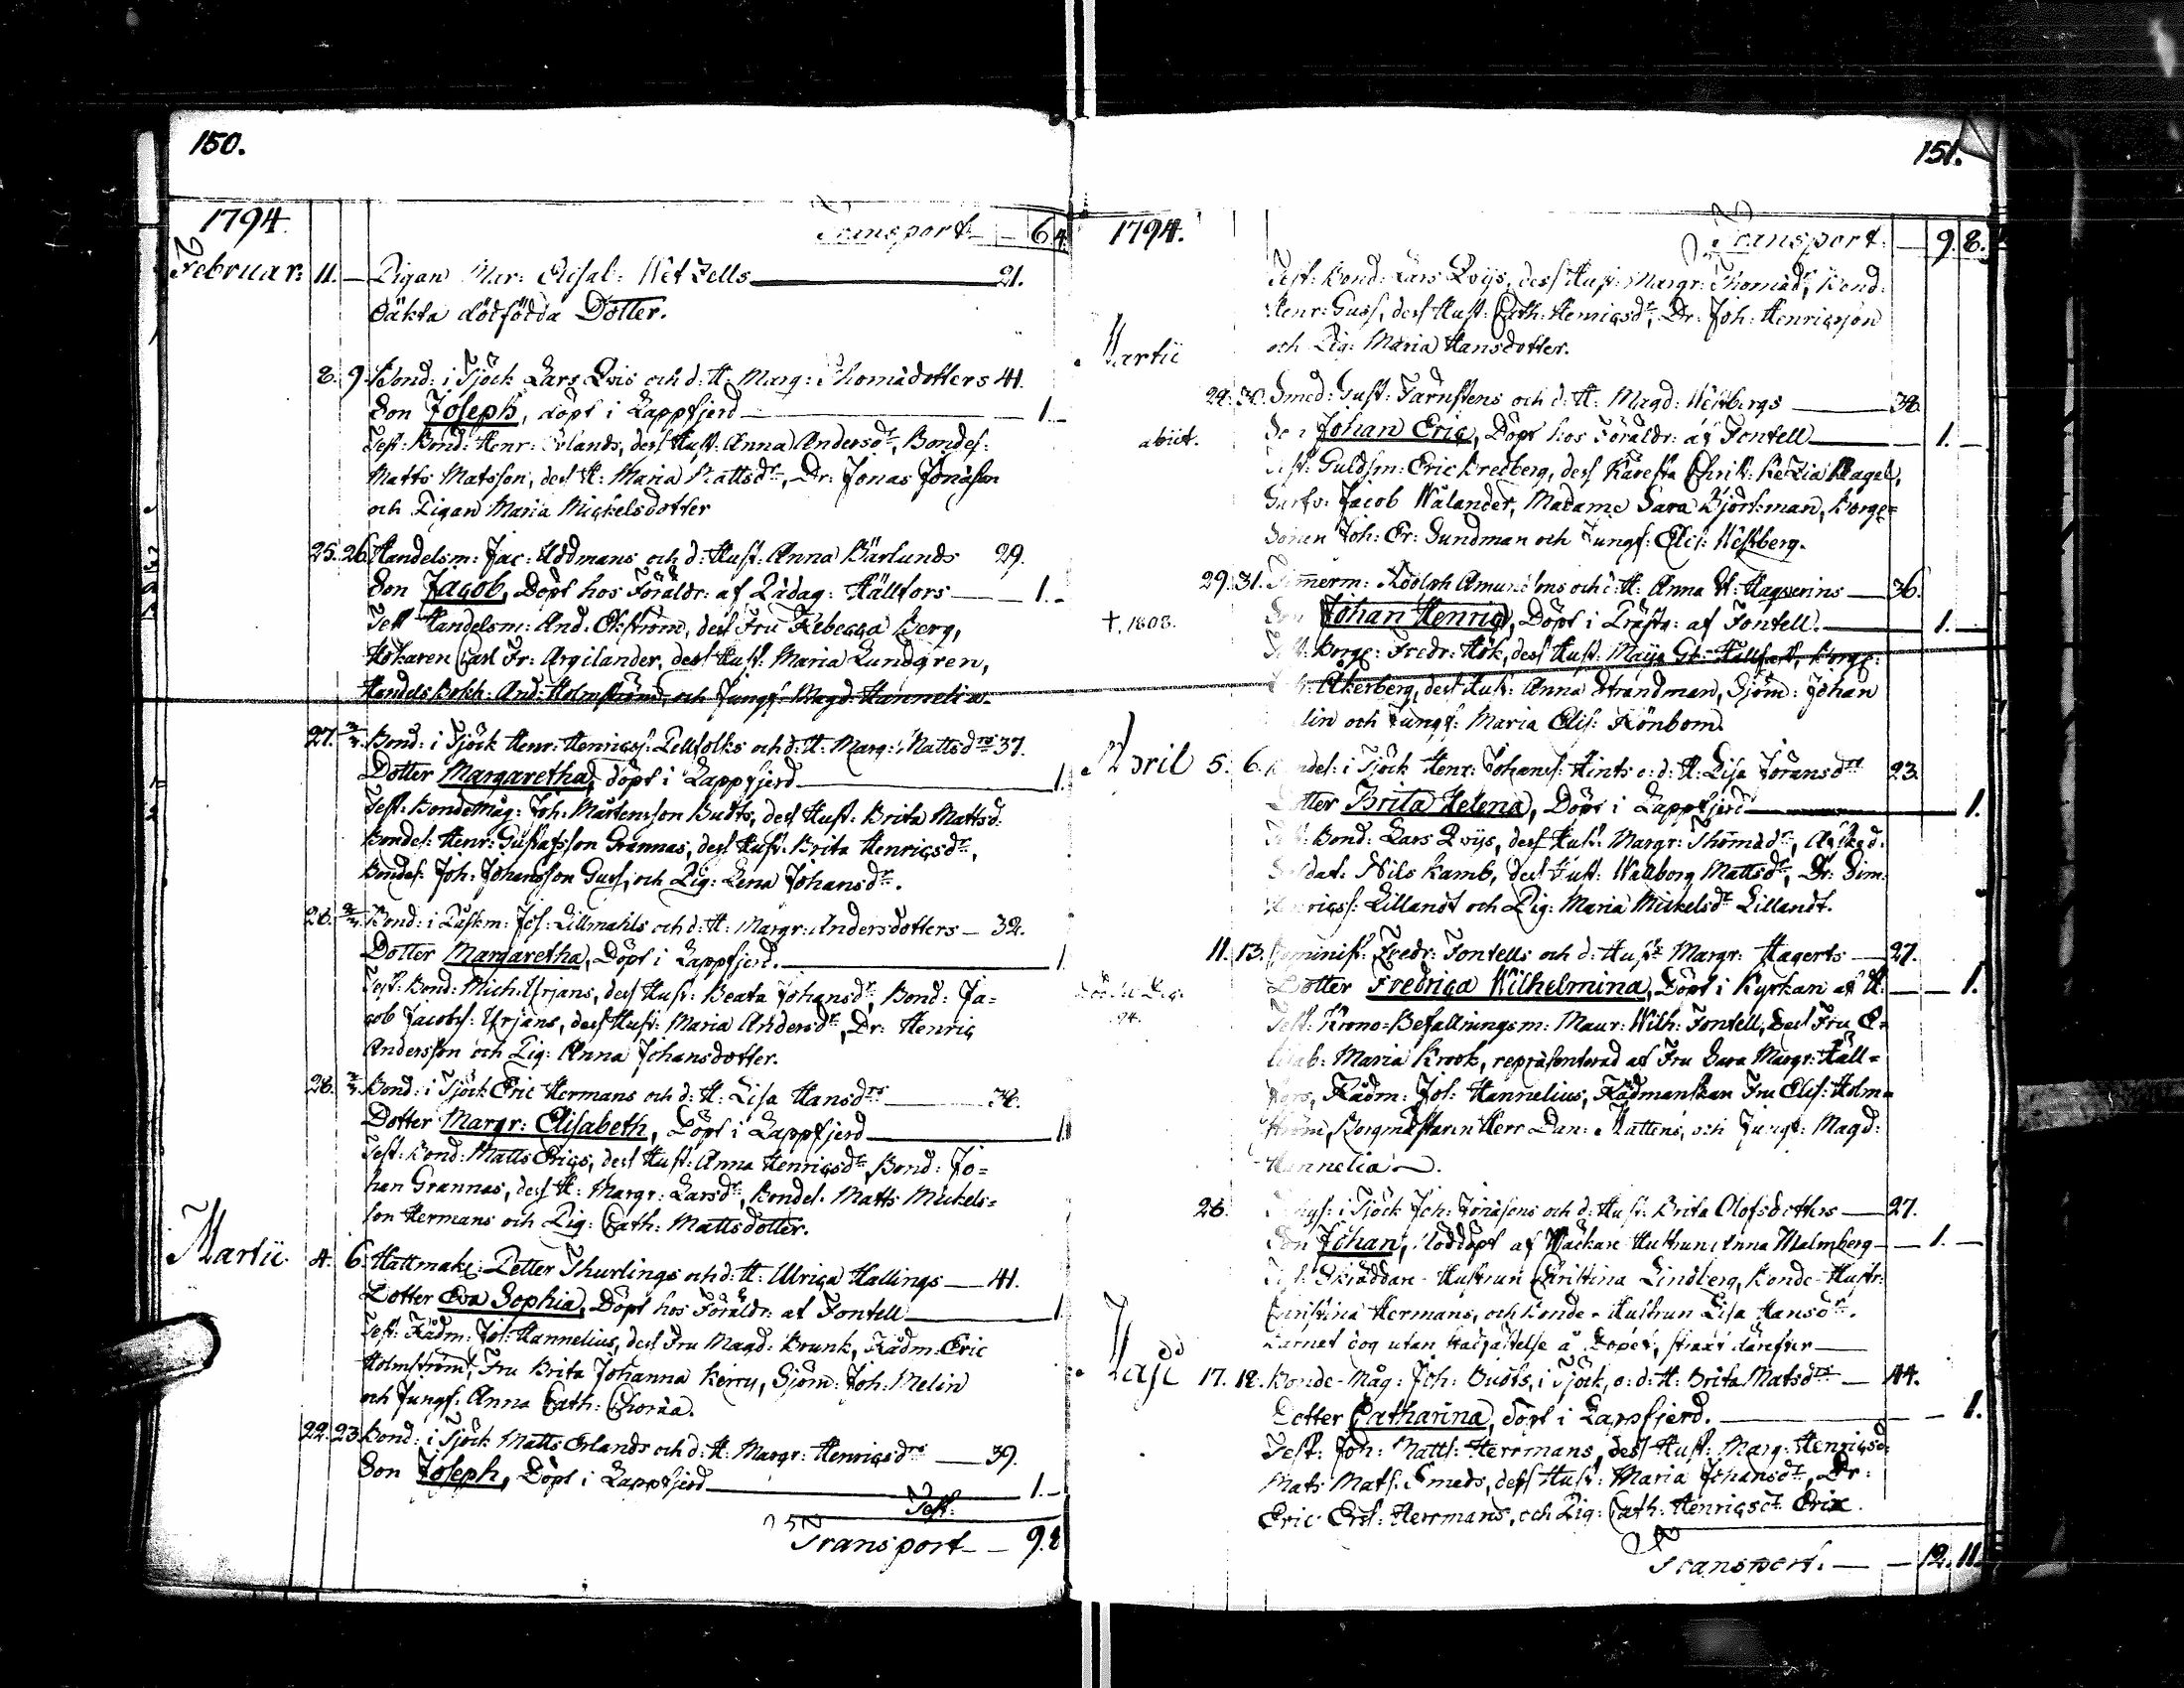 150.
1794. Transport — 6. 4.
Februar: 11. — Pigan Mar: Elisab: Wetzells — 21.
Oäkta dödfödda Dotter.
8. 9. Bond: i Tjöck Lars Qvis och d: H: Marg: Thomædotters 41.
Son Joseph, döpt i Lappfjerd — 1. —
Test: Bond: Henr: Erlands, dess Hust: Anna Andersdr, Bondes:
Matts Matsson, dess H: Maria Mattsdr, Dr: Jonas Jonasson
och Pigan Maria Mickelsdotter
25. 26. Handelsm: Jac: Uddmans och d: Hust: Anna Bärlunds 29.
Son Jacob, Döpt hos Föräldr: af Pædag: Hällfors — 1. —
Test Handelsm: And. Ekström, dess Fru Rebecca Berg,
Hökaren Carl Fr: Argilander, dess Hust: Maria Lundgren,
Handels Bokh: And: Holmström, och Jungf: Magd: Hannelia.
27. 2/3. Bond: i Tjöck Henr: Henricss: Pellfolks och d: H: Marg: Mattsdrs 37.
Dotter Margaretha, döpt i Lappfjerd — 1.
Test: Bondemåg: Joh: Mårtensson Budts, dess Hust: Brita Mattsd:
Bondes: Henr: Gustafsson Grannas, dess Hust: Brita Henricsdr,
Bondes: Joh: Johansson Guss, och Pig: Lena Johansdr.
26. 2/3. Bond: i Påskm: Jos: Lillmahls och d: H: Margr: Andersdotters — 32.
Dotter Margaretha, Döpt i Lappfjerd. — 1.
Test: Bond: Mich: Urjans, dess Hust: Beata Johansdr, Bond: Ja=
cob Jacobs: Urjans, dess Hust: Maria Andersdr, Dr: Henric
Andersson och Pig: Anna Johansdotter.
28. 2/3. Bond: i Tjöck Eric Hermans och d: H: Lisa Hansdrs —
Dotter Margr: Elisabeth, Döpt i Lappfjerd — 1.
Test: Bond: Matts Erics, dess Hust: Anna Henricsdr, Bond: Jo=
han Grannas, dess H: Margr: Larsdr, Bondes: Matts Mickels=
son Hermans och Pig: Cath: Mattsdotter.
Martii. 4. 6. Hattmak: Petter Thurlings och d: H: Ulrica Hallings — 41.
Dotter Eva Sophia, Döpt hos Föräldr: af Fontell — 1.
Test: Rådm: Jos: Hannelius, dess Fru Magd: Brunk, Rådm: Eric
Holmström, Fru Brita Johanna Kerry, Sjöm: Joh: Melin
och Jungf: Anna Cath: Choræa.
22. 23. Bond: i Tjöck Matts Erlands och d: H: Margr: Henricsdrs — 39.
Son Joseph, Döpt i Lappfjerd — 1. —
Test:
Transport — 9. 8
151.
1794. Transport: — 9. 8.
Test: Bond: Lars Qvijs, dess Hust: Margr: Thomædr, Bond:
Henr: Guss, dess Hust: Cath: Henricsdr, Dr: Joh: Henricsson
och Pig: Maria Hansdotter.
Martii
29. 30. Smed: Gust: Färnstens och d: H: Magd: Westbergs — 38.
abiit. Son Johan Eric, Döpt hos Föräldr: af Fontell — 1. —
Test: Guldsm: Eric Bredberg, dess Käresta Christ: Kezia Nagel,
Garfv: Jacob Wålander, Madame Sara Björkman, Borge=
Sonen Joh: Er: Sundman och Jungf: Elis: Westberg.
29. 31. Timmerm: Adolph Amundsons och d: H: Anna — 36.
†. 1808. Son Johan Henric, Döpt i Prästg: af Fontell. — 1. —
Test: Borge: Fredr: Hök, dess Hust: Maija St: Hallfast, Borge:
Åkerberg, dess Hust: Anna Strandman, Sjöm: Johan
lin och Jungf: Maria Elis: Rönbom.
April 5. 6. Bondes: i Tjöck Henr: Johans: Hints o: d: H: Lisa Joransdrs 23.
Dotter Brita Helena, Döpt i Lappfjerd — 1.
Test: Bond: Lars Qvijs, dess Hust: Margr: Thomædr, Afsked:
Soldat: Nils Kamb, dess Hust: Wallborg Mattsdr, Dr: Sim:
Henricss: Lillandt och Pig: Maria Mickelsdr Lillandt.
11. 13. Comminist: Fredr: Fontells och d: Hustr Margr: Hagerts — 27.
Dotter Fredrica Wilhelmina, Döpt i Kyrkan af H: — — 1.
94. Test: Krono=Befallningsm: Maur: Wilh: Fontell, dess Fru E=
lisab: Maria Krook, repræsenterad af Fru Sara Margr: Häll=
fors, Rådm: Jos: Hannelius, Rådmanskan Fru Elis: Holm=
ström, Borgmästaren Herr Dan: Mattens, och Jungf: Magd:
Hannelia.
26. i Tjöck Joh: Jonasons och d: Hust: Brita Olofsdotters — 27.
Son Johan, Nöddöpt af Wäckare Hustrun Anna Malmberg — 1. —
Test: Skräddare-Hustrun Christina Lindberg, Bonde-Hustr:
Christina Hermans, och Bonde-Hustrun Lisa Hansdr.
Barnet dog utan stadfästelse å Dopet, straxt därefter —
Maji 17. 18. Bonde-Måg: Joh: Budts, i Tjöck, o: d: H: Brita Matsdrs — 44.
Dotter Catharina, döpt i Lappfjerd. — 1.
Test: Joh: Matts: Herrmans, dess Hust: Marg: Henricsd:
Mats Mats: Smeds, dess Hust: Maria Johansdr, Dr:
Eric Ers: Herrmans, och Pig: Cath: Henricsdr Erix.
Transport. — — 12. 11.